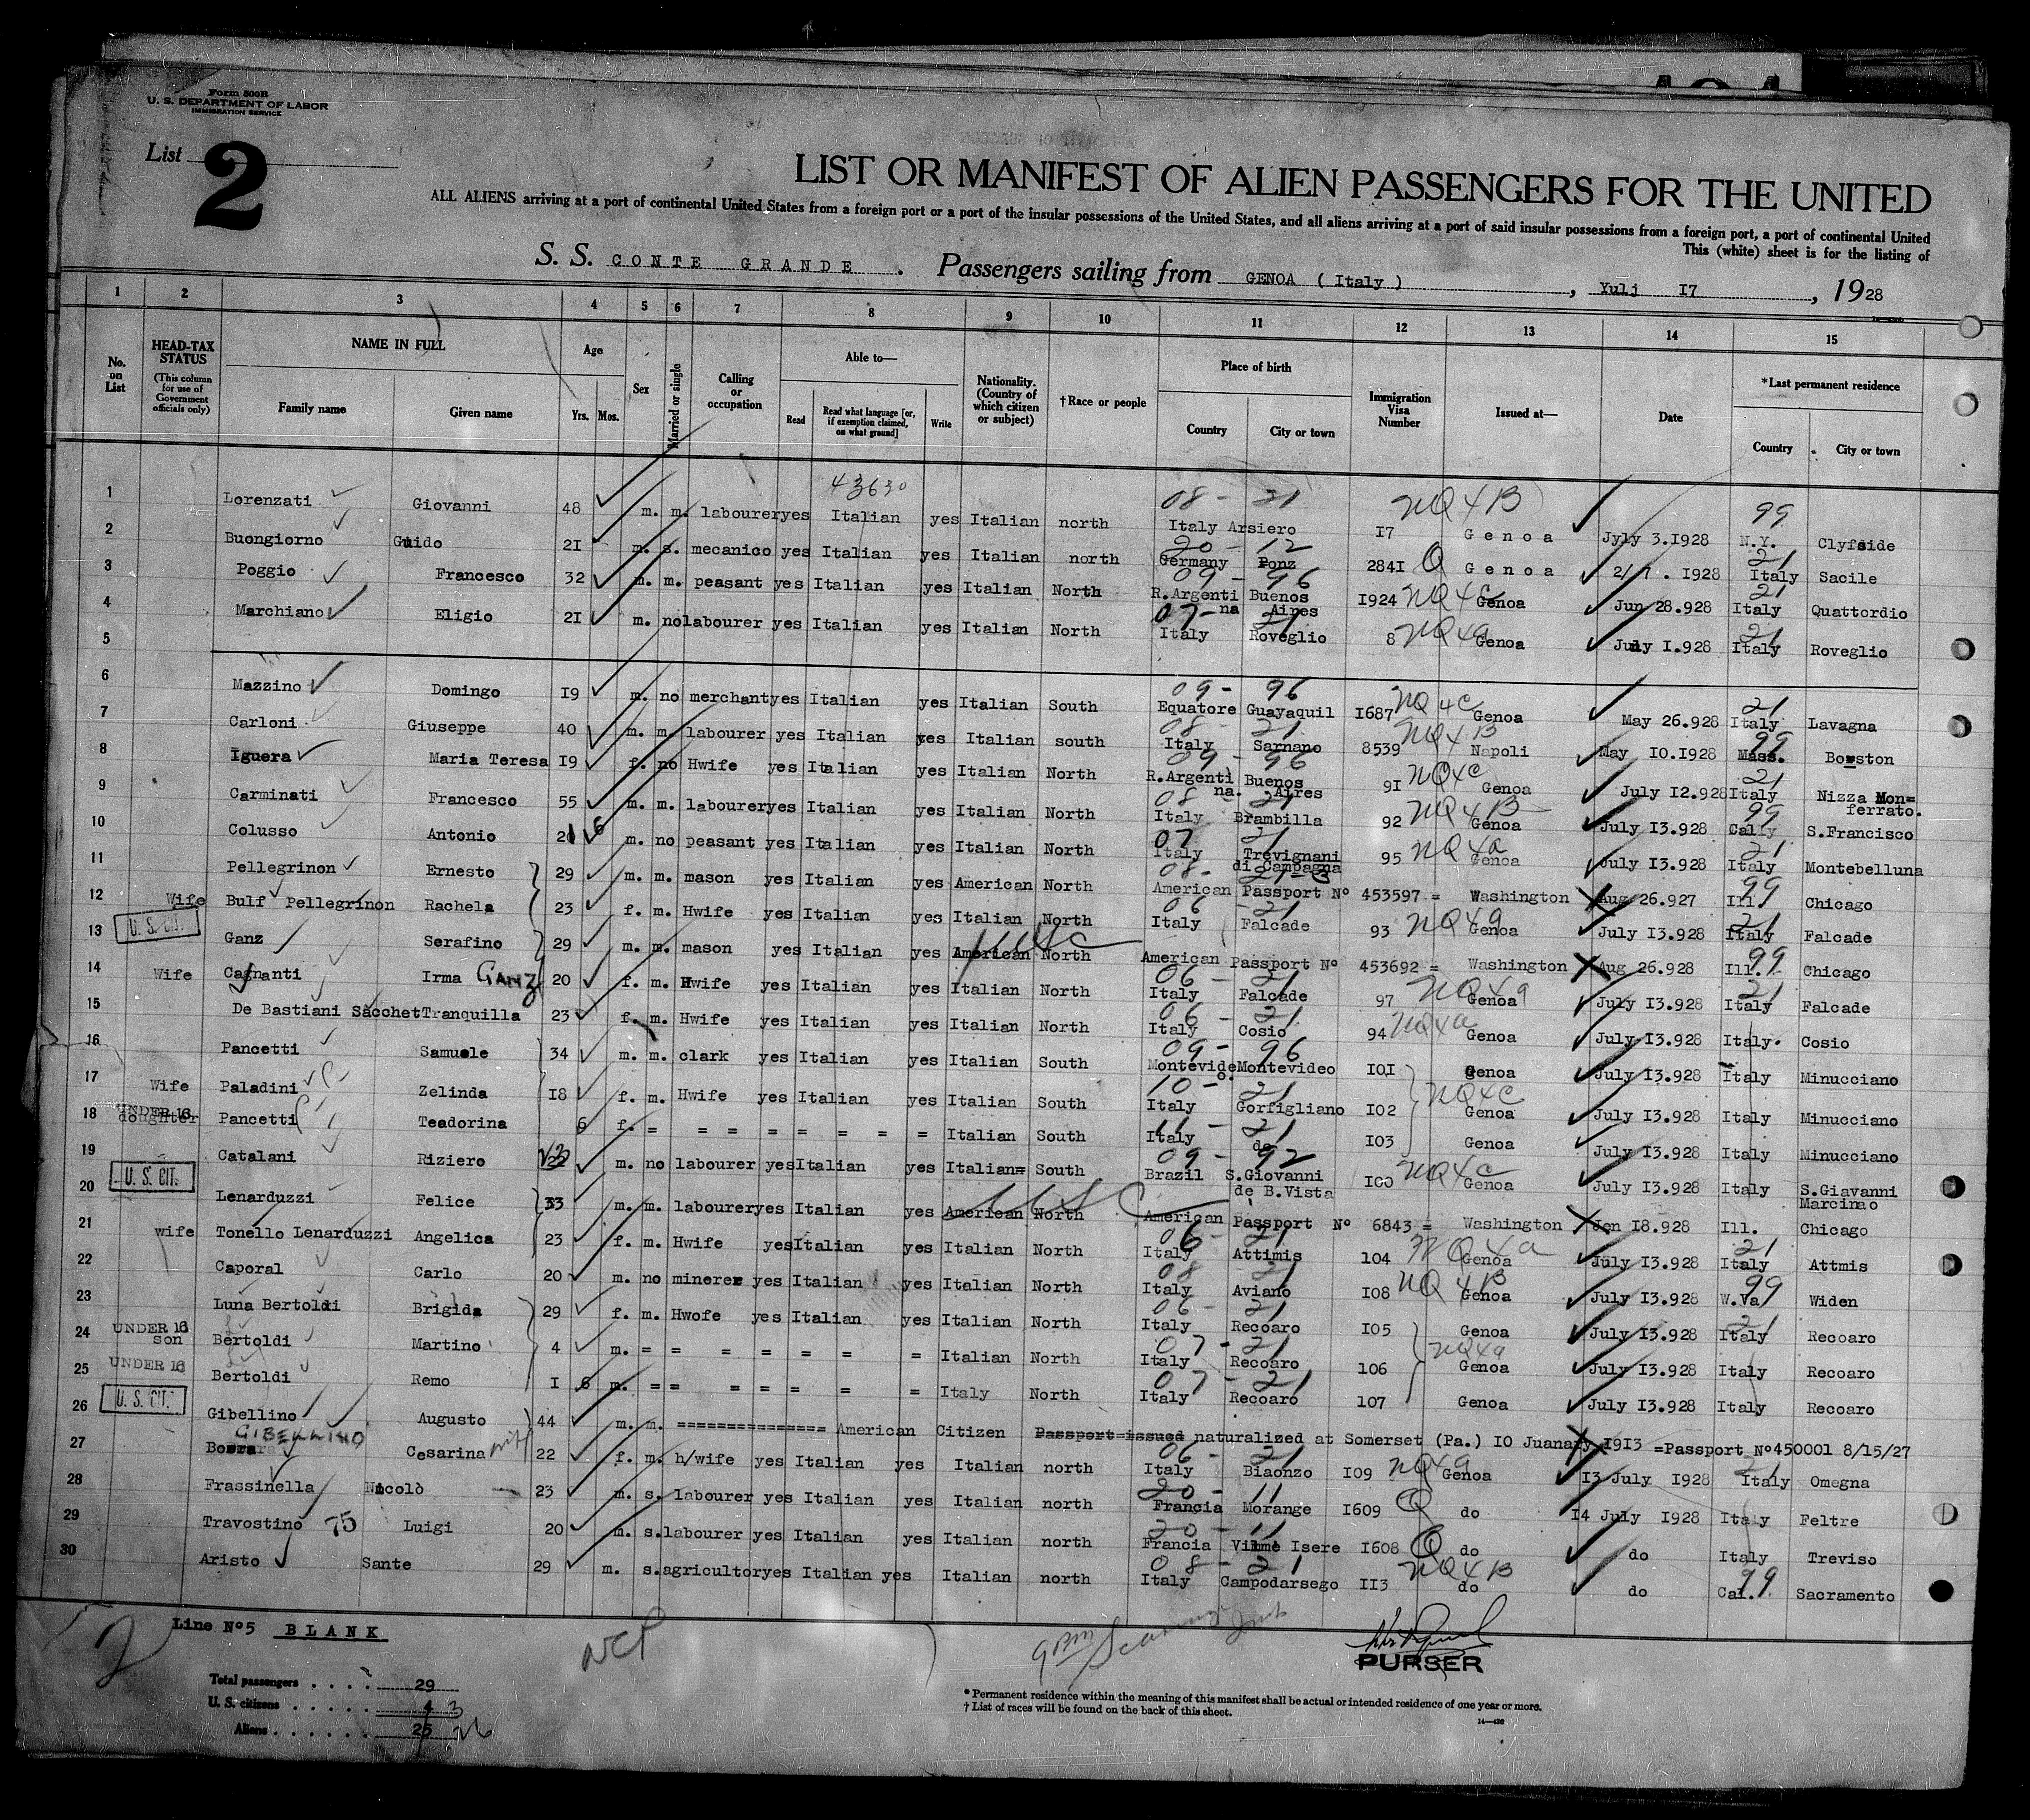 Form 500B
U. S. DEPARTMENT OF LABOR
IMMIGRATION SERVICE
List 2
LIST OR MANIFEST OF ALIEN PASSENGERS FOR THE UNITED
ALL ALIENS arriving at a port of continental United States from a foreign port or a port of the insular possessions of the United States, and all aliens arriving at a port of said insular possessions from a foreign port, a port of continental United
This (white) sheet is for the listing of
S. S. CONTE GRANDE . Passengers sailing from GENOA ( Italy ) , Yulj I7 , 1928
1 2 3 4 5 6 7 8 9 10 11 12 13 14 15
No. on List
HEAD-TAX STATUS (This column for use of Government officials only)
NAME IN FULL Family name Given name
Age Yrs. Mos.
Sex
Married or single
Calling or occupation
Able to— Read Read what language [or, if exemption claimed, on what ground] Write
Nationality. (Country of which citizen or subject)
†Race or people
Place of birth Country City or town
Immigration Visa Number
Issued at—
Date
*Last permanent residence Country City or town
43630 08 - 21 NQ4B 99
1 Lorenzati Giovanni 48 m. m. labourer yes Italian yes Italian north Italy Arsiero I7 Genoa Jyly 3.I928 N.Y. Clyfside
20 - 12 Q 21
2 Buongiorno Guido 2I m. s. mecanico yes Italian yes Italian north Germany Ponz 284I Genoa 2/7 . I928 Italy Sacile
09 - 96 NQ4C 21
3 Poggio Francesco 32 m. m. peasant yes Italian yes Italian North R.Argentina Buenos Aires I924 Genoa Jun 28.928 Italy Quattordio
07 - 21 NQ4a 21
4 Marchiano Eligio 2I m. no labourer yes Italian yes Italian North Italy Roveglio 8 Genoa July I.928 Italy Roveglio
5
09 - 96 NQ4C 21
6 Mazzino Domingo I9 m. no merchant yes Italian yes Italian South Equatore Guayaquil I687 Genoa May 26.928 Italy Lavagna
08 - 21 NQ4B 99
7 Carloni Giuseppe 40 m. m. labourer yes Italian yes Italian south Italy Sarnano 8539 Napoli May I0.I928 Mass. Boston
09 - 96 NQ4C 21
8 Iguera Maria Teresa I9 f. no Hwife yes Italian yes Italian North R.Argentina. Buenos Aires 9I Genoa July I2.928 Italy Nizza Mon=ferrato.
08 - 21 NQ4B 99
9 Carminati Francesco 55 m. m. labourer yes Italian yes Italian North Italy Brambilla 92 Genoa July I3.928 Cally S.Francisco
07 21 NQ4a 21
10 Colusso Antonio 21 6 m. no peasant yes Italian yes Italian North Italy Trevignani di Campagna 95 Genoa July I3.928 Italy Montebelluna
08- 21 99
11 Pellegrinon Ernesto 29 m. m. mason yes Italian yes American North American Passport Nº 453597 = Washington Aug 26.927 Ill. Chicago
06 - 21 NQ4a 21
12 Wife Bulf Pellegrinon Rachela 23 f. m. Hwife yes Italian yes Italian North Italy Falcade 93 Genoa July I3.928 Italy Falcade
U. S. CIT. USC 99
13 Ganz Serafino 29 m. m. mason yes Italian yes American North American Passport Nº 453692 = Washington Aug 26.928 Ill. Chicago
06 - 21 NQ4a 21
14 Wife Cagnanti Irma GANZ 20 f. m. Hwife yes Italian yes Italian North Italy Falcade 97 Genoa July I3.928 Italy Falcade
06 - 21 NQ4a
15 De Bastiani Sacchet Tranquilla 23 f. m. Hwife yes Italian yes Italian North Italy Cosio 94 Genoa July I3.928 Italy. Cosio
09 - 96
16 Pancetti Samuele 34 m. m. clark yes Italian yes Italian South Montevideo. Montevideo I0I genoa July I3.928 Italy Minucciano
10 - 21 NQ4C
17 Wife Paladini Zelinda I8 f. m. Hwife yes Italian yes Italian South Italy Gorfigliano I02 Genoa July I3.928 Italy Minucciano
11 - 21
18 UNDER 16 doughter Pancetti Teadorina 6 f. = = = = = = = = Italian South Italy do I03 Genoa July I3.928 Italy Minucciano
09 - 92 NQ4C
19 Catalani Riziero 22 m. no labourer yes Italian yes Italian= South Brazil S.Giovanni de B.Vista I00 Genoa July I3.928 Italy S.Giavanni Marcimo
U. S. CIT. USC
20 Lenarduzzi Felice 33 m. m. labourer yes Italian yes American North American Passport Nº 6843 = Washington Jen I8.928 Ill. Chicago
06 - 21 NQ4a 21
21 wife Tonello Lenarduzzi Angelica 23 f. m. Hwife yes Italian yes Italian North Italy Attimis 104 Genoa July I3.928 Italy Attmis
08 21 NQ4B 99
22 Caporal Carlo 20 m. no minerer yes Italian yes Italian North Italy Aviano I08 Genoa July I3.928 W.Va Widen
06 - 21 21
23 Luna Bertoldi Brigida 29 f. m. Hwofe yes Italian yes Italian North Italy Recoaro I05 Genoa July I3.928 Italy Recoaro
07 - 21 NQ4a
24 UNDER 16 son Bertoldi Martino 4 m. = = = = = = = Italian North Italy Recoaro 106 Genoa July I3.928 Italy Recoaro
07 - 21
25 UNDER 16 Bertoldi Remo I 6 m. = = = = = = = Italy North Italy Recoaro 107 Genoa July I3.928 Italy Recoaro
U. S. CIT.
26 Gibellino Augusto 44 m. m. =============== American Citizen Passport=issued naturalized at Somerset (Pa.) I0 Juanary I9I3 =Passport Nº450001 8/15/27
GIBELLINO 06 - 21 NQ4a 21
27 Cesarina wife 22 f. m. h/wife yes Italian yes Italian north Italy Biaonzo I09 Genoa I3 July I928 Italy Omegna
20 - 11 Q
28 Frassinella Nicolò 23 m. s. labourer yes Italian yes Italian north Francia Morange I609 do I4 July I928 Italy Feltre
20 - 11 Q
29 Travostino 75 Luigi 20 m. s. labourer yes Italian yes Italian north Francia Isere I608 do do Italy Treviso
08 - 21 NQ4B 99
30 Aristo Sante 29 m. s. agricultor yes Italian yes Italian north Italy Campodarsego II3 do do Cal. Sacramento
2
Line Nº5 BLANK
Total passengers . . . . 29
U. S. citizens . . . . . 4 3
Aliens . . . . . . 25 26
PURSER
* Permanent residence within the meaning of this manifest shall be actual or intended residence of one year or more.
† List of races will be found on the back of this sheet.